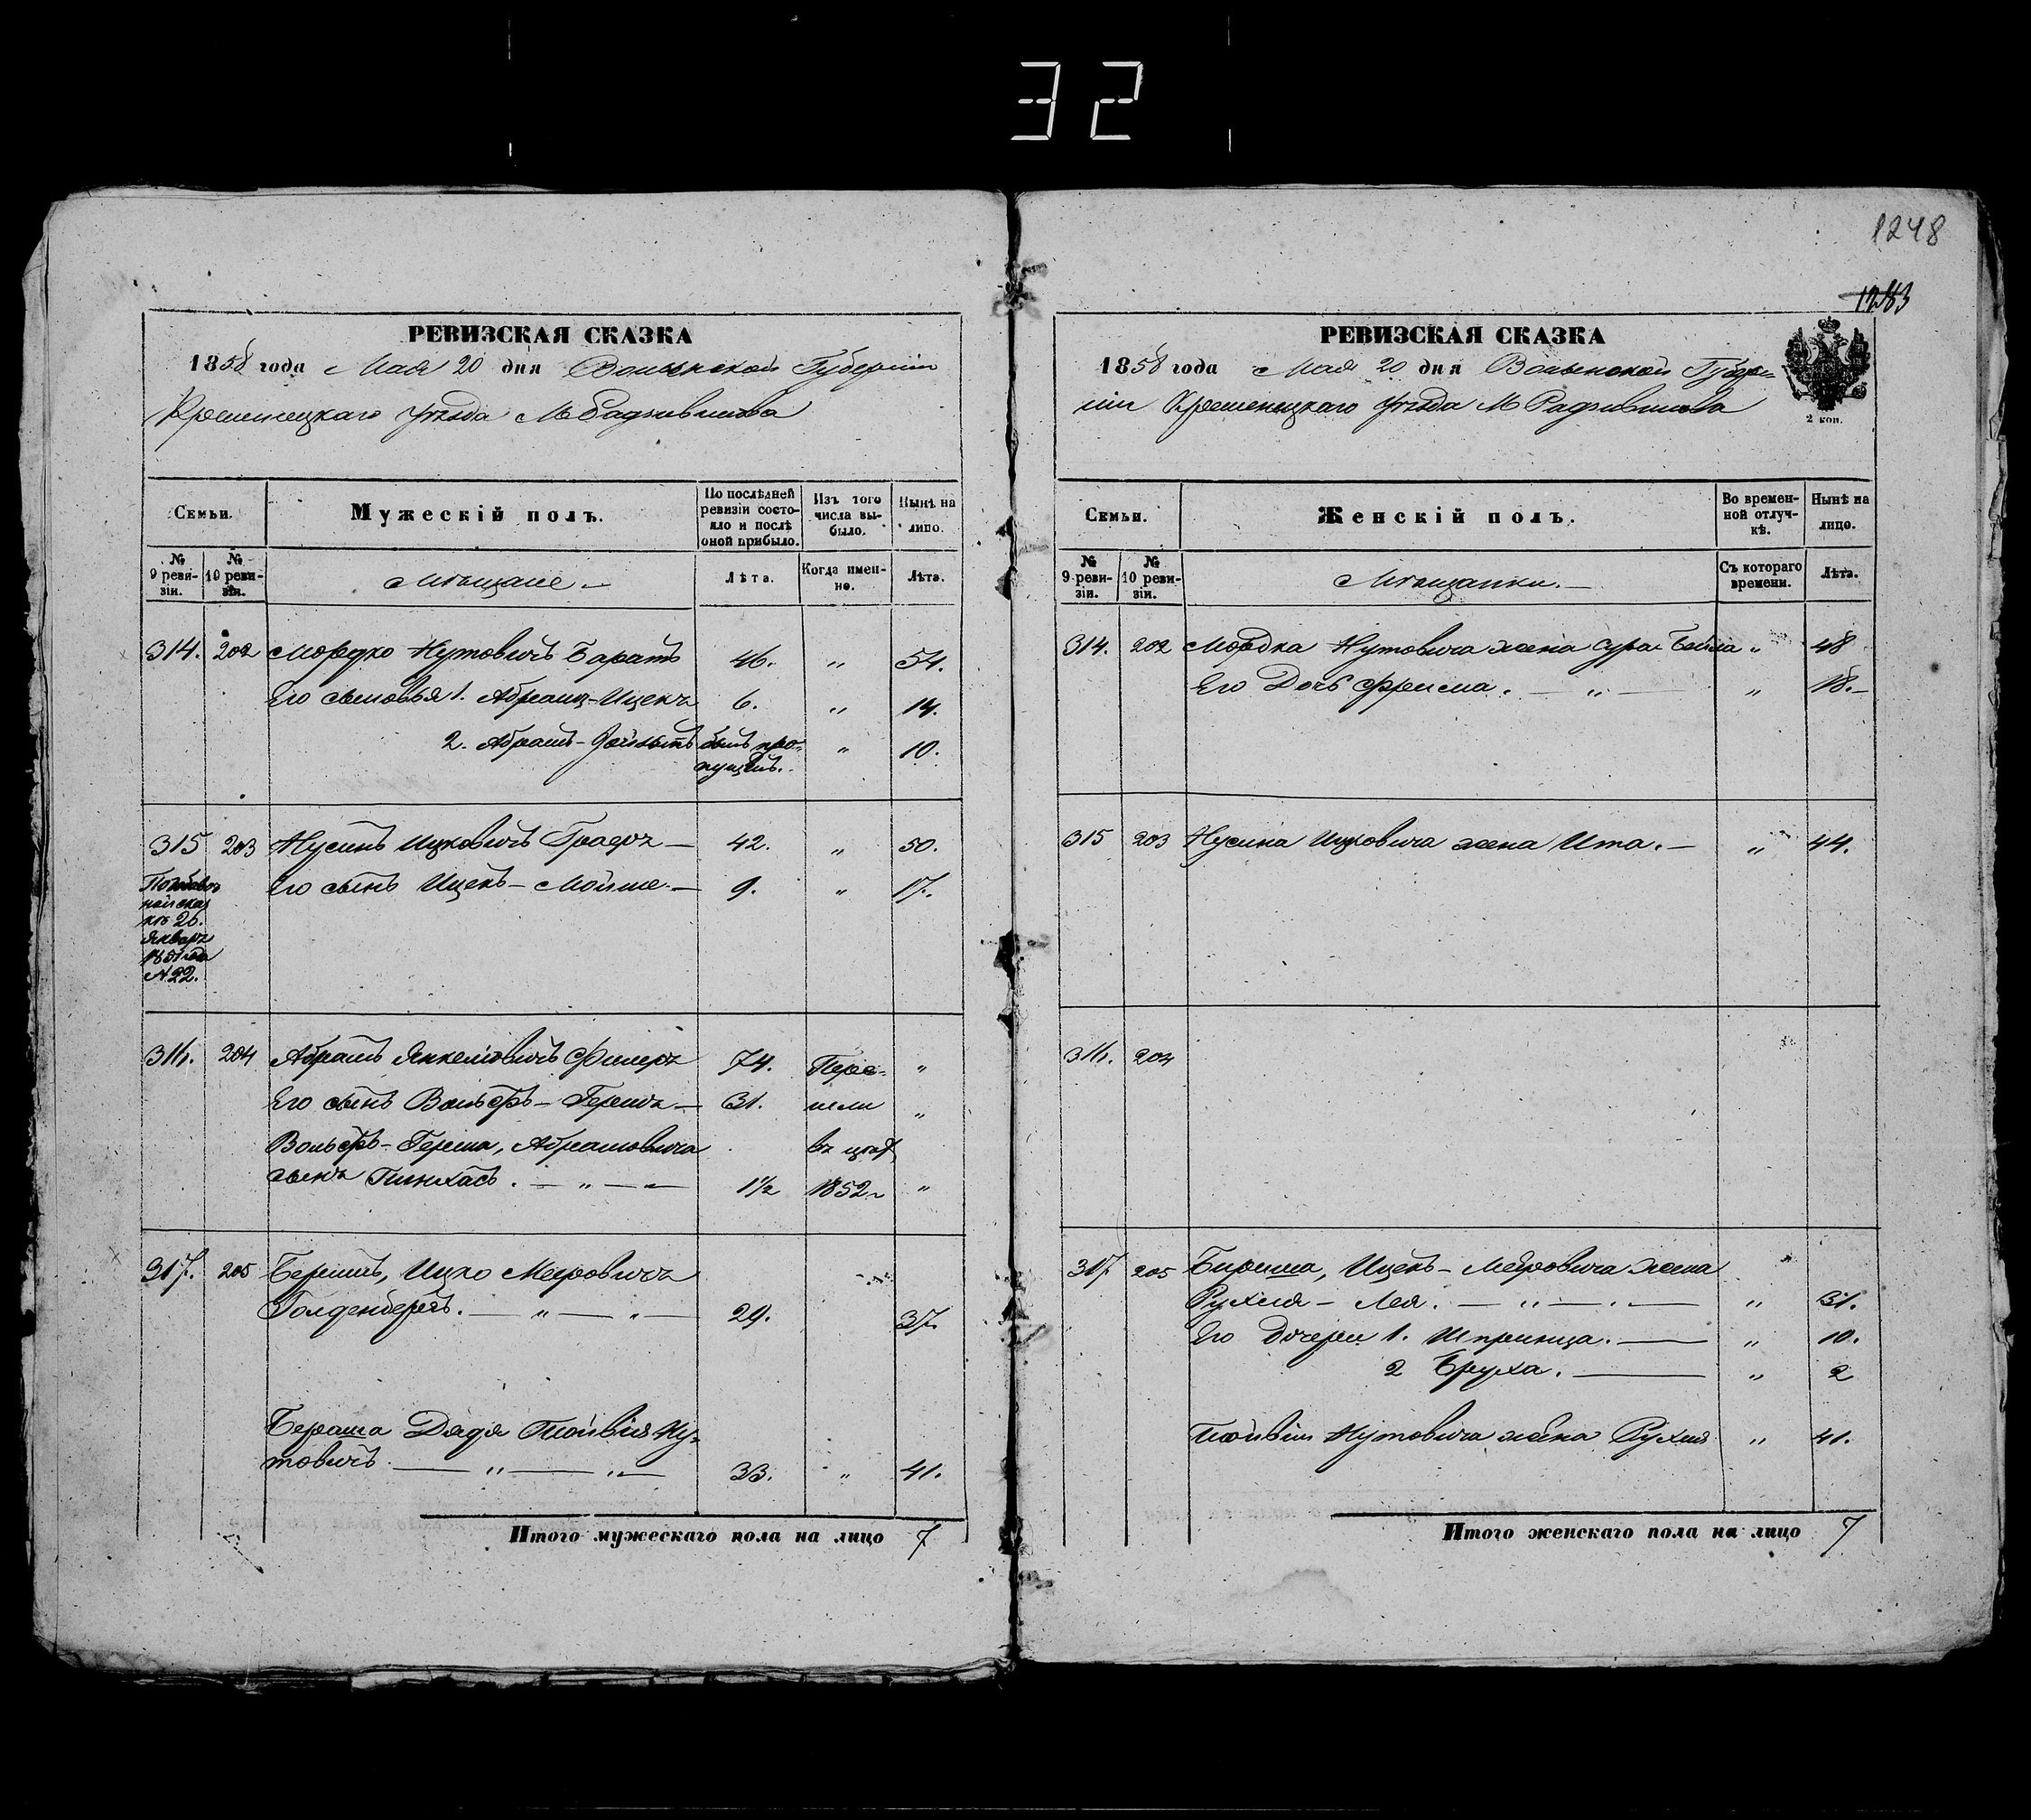 32
1248
1283
РЕВИЗСКАЯ СКАЗКА
1858 года Мая 20 дня Волынской Губерніи
Кременецкаго Уѣзда М Радзивилова
Семьи.
Мужескій полъ.
По послѣдней ревизіи состояло и послѣ оной прибыло.
Изъ того числа выбыло.
Нынѣ на лицо.
№ 9 ревизіи.
№ 10 ревизіи.
Мѣщане
Лѣта.
Когда именно.
Лѣта.
314. 202 Мордко Нутовичъ Баратъ 46. " 54.
Его сыновья 1. Абрамъ-Ицекъ 6. " 14.
2. Абрамъ- былъ про- " 10.
пущенъ.
315 203 Нусинъ Ицковичъ Графъ 42. " 50.
Его сынъ Ицекъ-Мойше 9. " 17.
26.
Январъ
1851 года
№ 22.
316. 204 Абрамъ Янкелювичъ Фишеръ 74. Пере- "
Его сынъ Вольфъ-Гершъ 31. шли "
Вольфъ-Герша, Абрамовича въ
сынъ Пинхасъ. — " — " 1½ 1852 "
317. 205 Беришъ, Ицко Меѳровичъ
Голденбергъ. — " — " — 29. 37.
Бераша Дядя Тойвія Ну-
товичъ — " — " — 33. " 41.
Итого мужескаго пола на лицо 7
РЕВИЗСКАЯ СКАЗКА
1858 года Мая 20 дня Волынской Губер-
ніи Кременецкаго Уѣзда М Радзивилова
2 коп.
Семьи.
Женскій полъ.
Во временной отлучкѣ.
Нынѣ на лицо.
№ 9 ревизіи.
№ 10 ревизіи.
Мѣщанки.
Съ котораго времени.
Лѣта.
314. 202 Мордка Нутовича жена Сура-Бейла " 48
Его Дочь Фрима. — " — " 18.
315 203 Нусина Ицковича жена Ита. — " 44.
316. 204
317. 205 Бириша, Ицекъ-Меѳровича жена
Рухля-Лея. — " — " — " 31.
Его Дочери 1. Шпринца. — " 10.
2 Бруха. — " 2
Тойвіи Нутовича жена Рухля " 41.
Итого женскаго пола на лицо 7